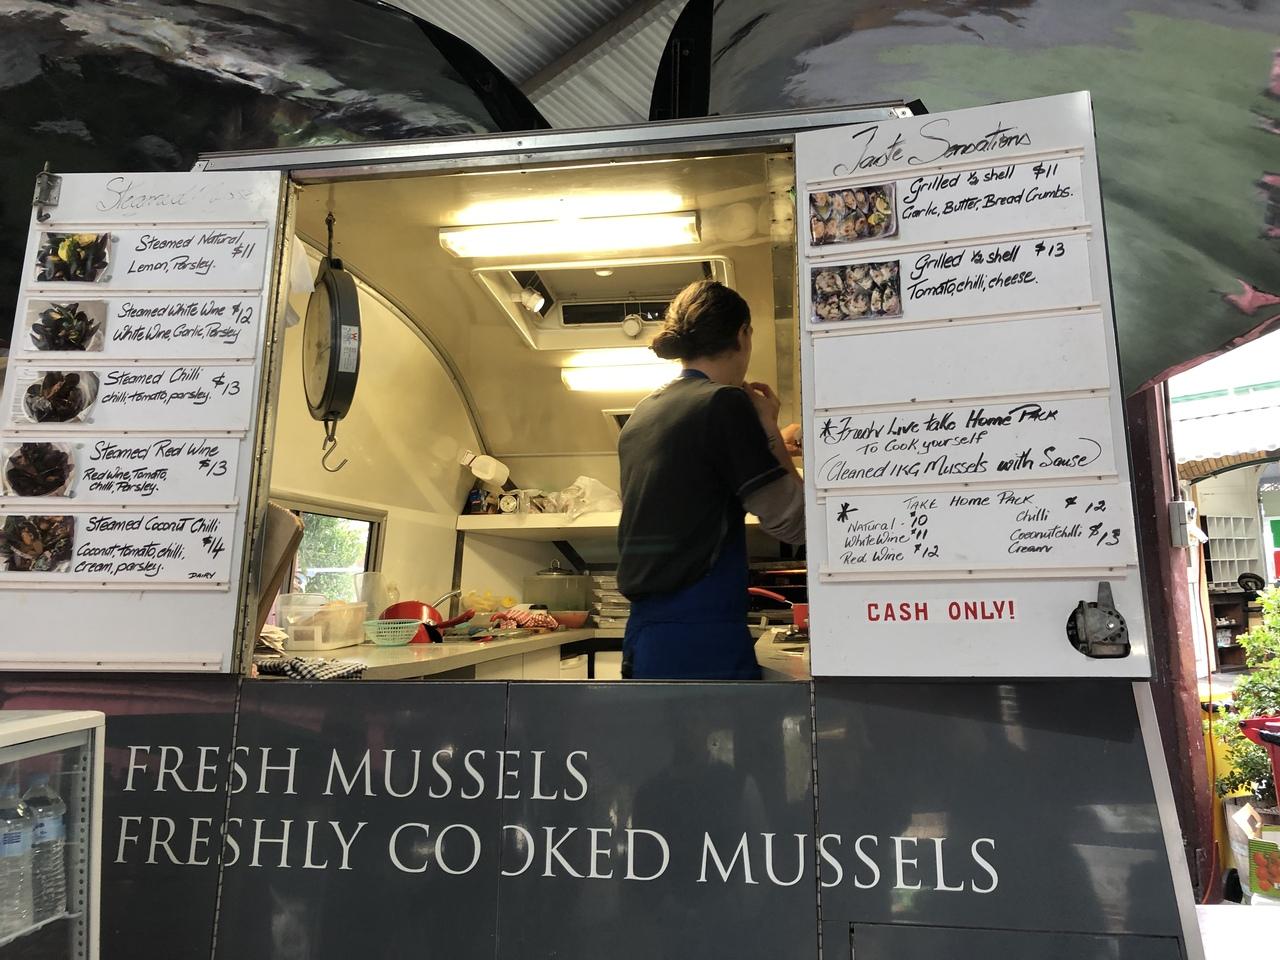 Steamed
Steamed Natural
Lemon, Parsley. $11
Steamed White Wine $12
White Wine, Garlic, Parsley
Steamed Chilli
chilli, tomato, parsley. $13
Steamed Red Wine
Red Wine, Tomato, $13
chilli, Parsley.
Steamed Coconut Chilli
Coconut, tomato, chilli, $14
cream, parsley.
DAIRY
Taste Sensations
Grilled ½ shell $11
Garlic, Butter, Bread Crumbs.
Grilled ½ shell $13
Tomato, chilli, cheese.
* Live take Home Pack
To Cook yourself
(Cleaned 1KG Mussels with Sause)
* TAKE Home PACK
Natural - $10
White Wine $11
Red Wine $12
Chilli $12
Coconutchilli $13
Cream
CASH ONLY!
FRESH MUSSELS
FRESHLY COOKED MUSSELS